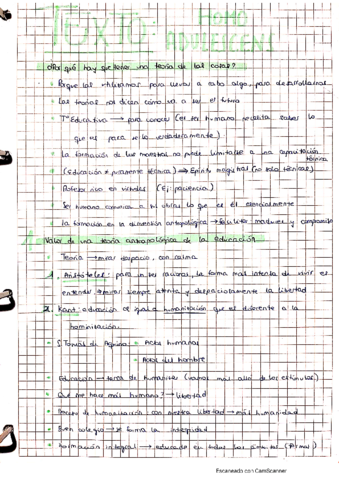 TEXTO: HOMO
ADOLESCENS
¿Por qué hay que tener una teoría de las cosas?
Porque las utilizamos para llevar a cabo algo, para desarrollarnos
Las teorías nos dicen cómo va a ser el futuro
Tª Educativa → para conocer (el ser humano necesita saber lo
que es para serlo verdaderamente)
La formación de los maestros no puede limitarse a una capacitación
técnica
(Educación ≠ puramente técnica) → Espíritu magistral (no solo técnicas)
en virtudes (Ej: paciencia)
Ser humano comienza a vivir lo que es él esencialmente
La formación en la dimensión antropológica → facilitar, madurez y
Valor de una teoría antropológica de la educación
Teoría → mirar despacio, con calma
1. Aristóteles: para un ser racional, la forma más intensa de vivir es
entender → mirar siempre atenta y despaciosamente la libertad
2. Kant: educación es igual a humanización que es diferente a la
hominización.
S. Tomás de Aquino: Actos humanos
Actos del hombre
Educación → tarea de humanitas (vamos más allá de los estímulos)
Qué me hace más humano? → libertad
de humanización con nuestra libertad → más humanidad
Buen colegio → se forma la integridad
Formación integral → educado en todos los
Escaneado con CamScanner